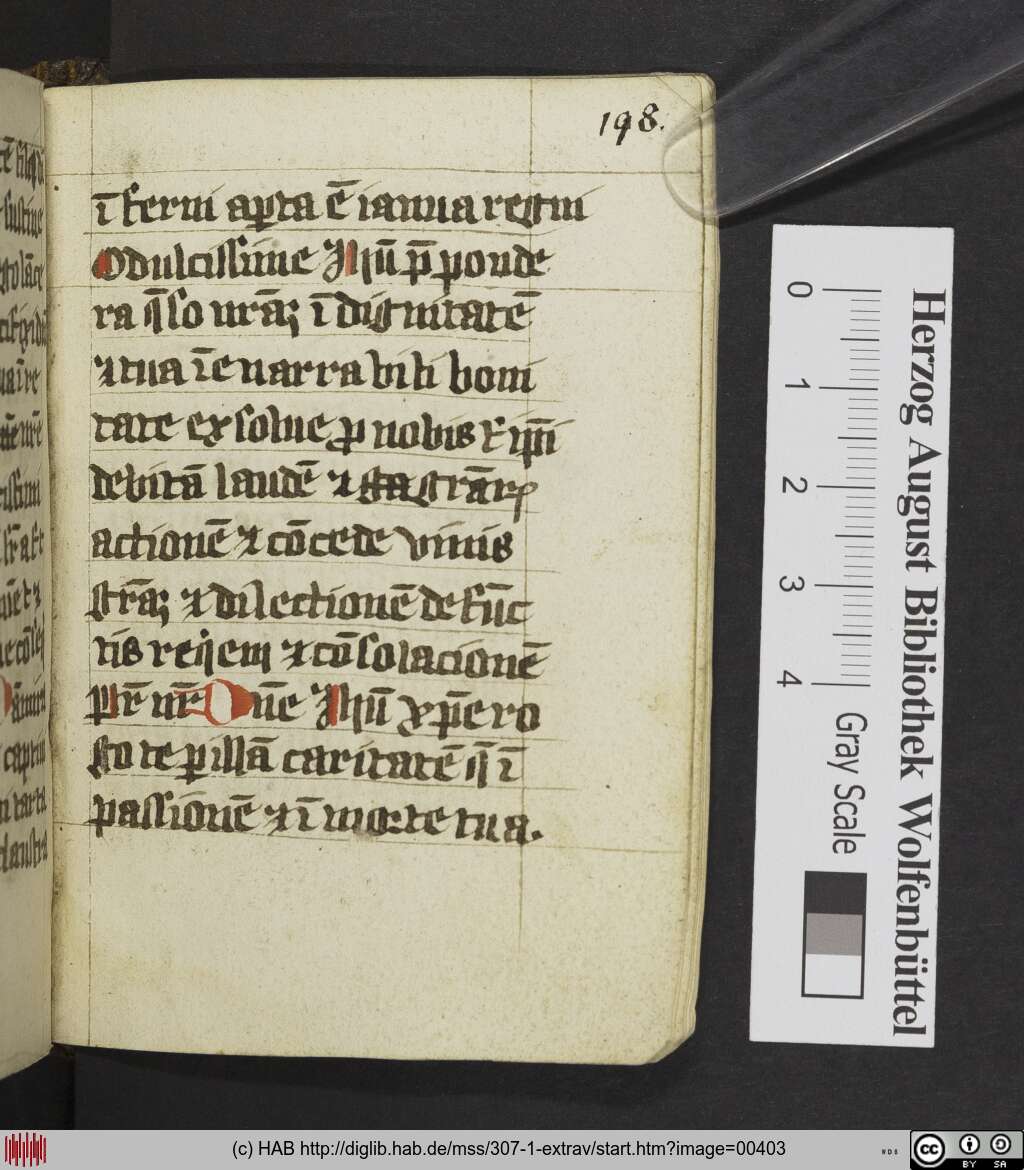 198.
ī ferni aꝑta ē ianua regni
O dulcissime Jhū p̄ ponde
ra q̄so nr̄aꝫ īdignitatē
⁊ tua īenarrabili boni
tate exsolue ꝓ nobis
debitā laudē ⁊ gr̄aꝝ
actionē ⁊ cōcede viuis
gr̄aꝫ ⁊ dilectionē defūc
tis requiem ⁊ cōsolacionē
pr̄ nr̄ Dn̄e Jhū xp̄e ro
go te ꝑ illā caritatē q̄ ī
passionē ⁊ ī morte tua.
0
1
2
3
4
Gray Scale
Herzog August Bibliothek Wolfenbüttel
(c) HAB http://diglib.hab.de/mss/307-1-extrav/start.htm?image=00403
cc
BY SA